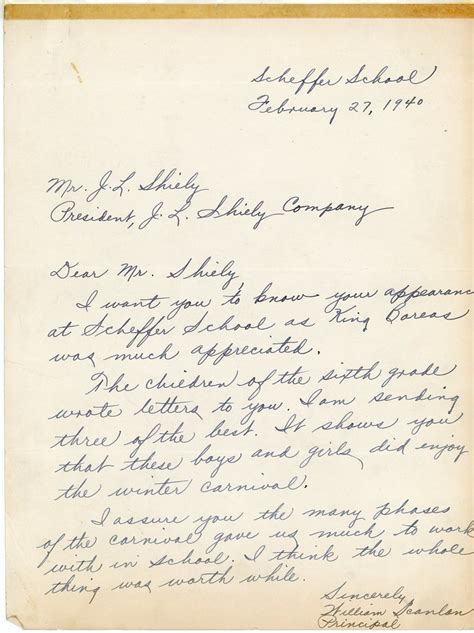 Scheffer School
February 27, 1940
Mr. J. L. Shiely
President, J. L. Shiely Company
Dear Mr. Shiely,
I want you to know your appearance
at Scheffer School as King Boreas
was much appreciated.
The children of the sixth grade
wrote letters to you. I am sending
three of the best. It shows you
that these boys and girls did enjoy
the winter carnival.
I assure you the many phases
of the carnival gave us much to work
with in school. I think the whole
thing was worth while.
Sincerely,
William Scanlan
Principal